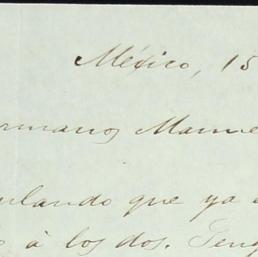 México, 15
ermanos Manue
ulando que ya
à los dos. Teng